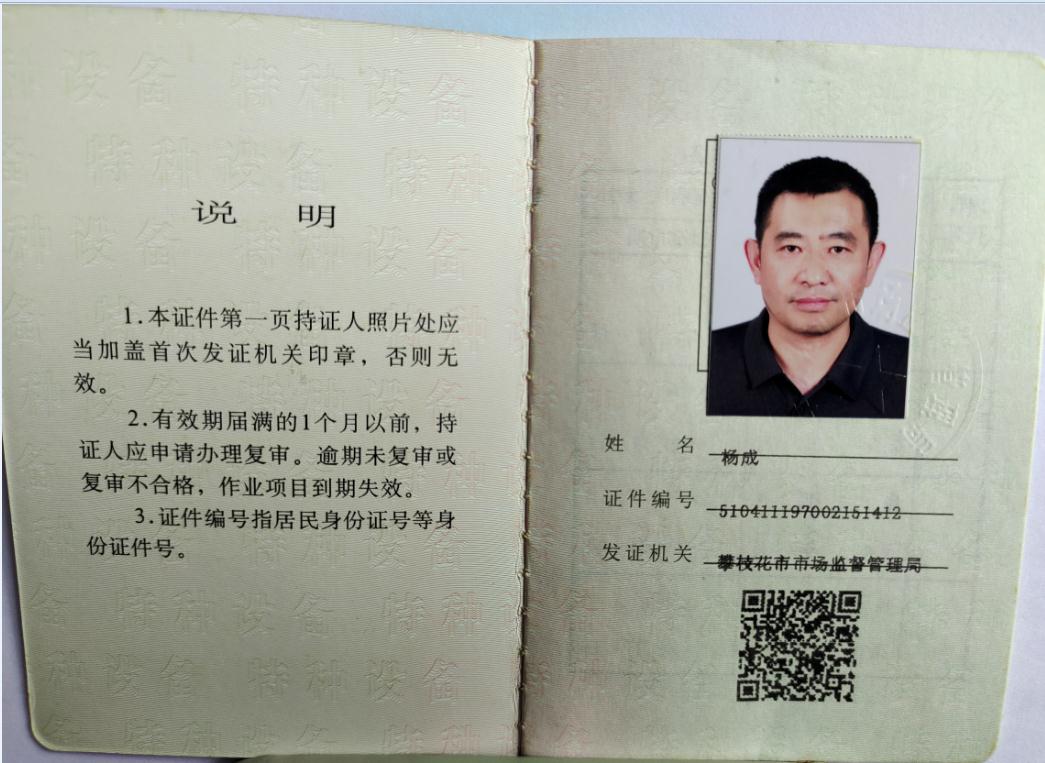 说 明
1.本证件第一页持证人照片处应
当加盖首次发证机关印章，否则无
效。
2.有效期届满的1个月以前，持
证人应申请办理复审。逾期未复审或
复审不合格，作业项目到期失效。
3.证件编号指居民身份证号等身
份证件号。
姓 名 杨成
证件编号 510411197002151412
发证机关 攀枝花市市场监督管理局